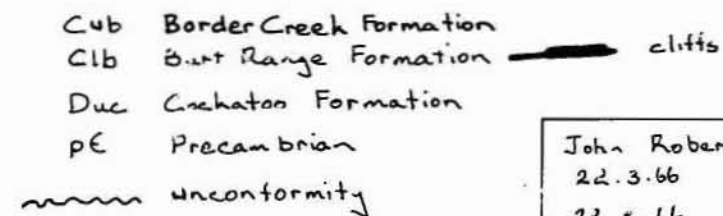 Cub Border Creek Formation
Clb Burt Range Formation cliffs
Duc Formation
p€ Precambrian
unconformity
John Rober
22.3.66